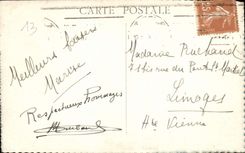 CARTE POSTALE
13
Meilleurs baisers
Marcre
Respectueux hommages
Madame
bis rue du Pont St Martial
Limoges
Hte Vienne